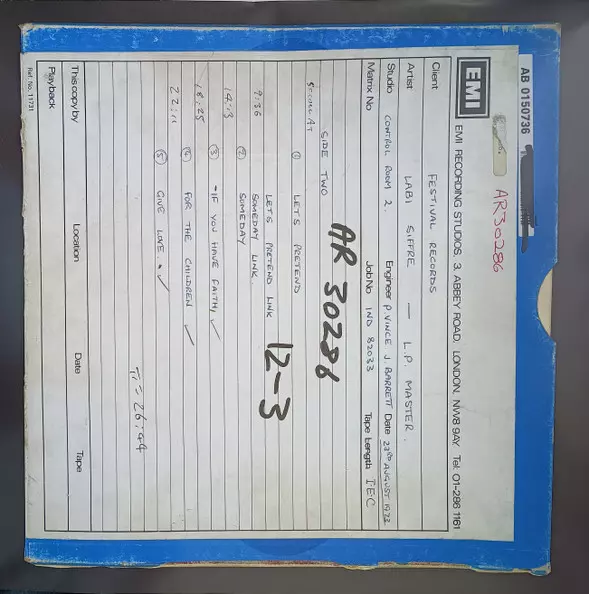 AB 0150736
AR30286
EMI
EMI RECORDING STUDIOS, 3, ABBEY ROAD, LONDON, NW8 9AY. Tel. 01-286 1161
Client FESTIVAL RECORDS
Artist LABI SIFFRE — L.P. MASTER.
Studio CONTROL ROOM 2. Engineer P. VINCE J. BARRETT Date 23RD AUGUST 1973
Matrix No Job No IND 82033 Tape Length IEC
AR 30286
SIDE TWO
① LET'S PRETEND
9:36 LET'S PRETEND LINK
12-3
SOMEDAY LINK
14:13 ② SOMEDAY
18:25 ③ "IF YOU HAVE FAITH, ✓
22:11 ④ FOR THE CHILDREN ✓
⑤ GIVE LOVE. ✓
T = 26:44
This copy by Location Date Tape
Playback
Ref. No. 11731